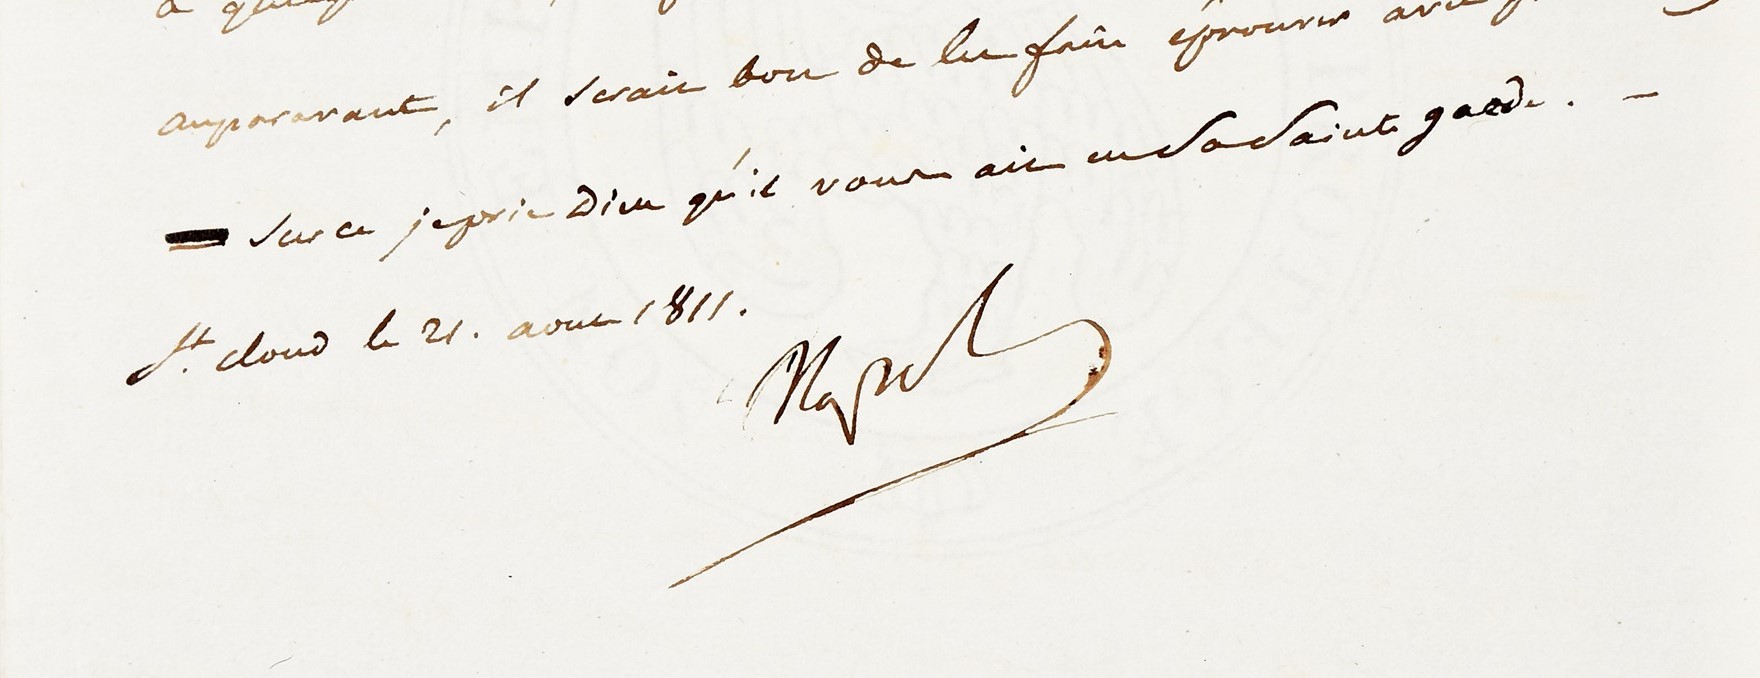 auparavant, il serait bon de les faire éprouver avec
— Sur ce je prie Dieu qu'il vous ait en Sa Sainte garde. —
St. cloud le 21. aout 1811.
Napol